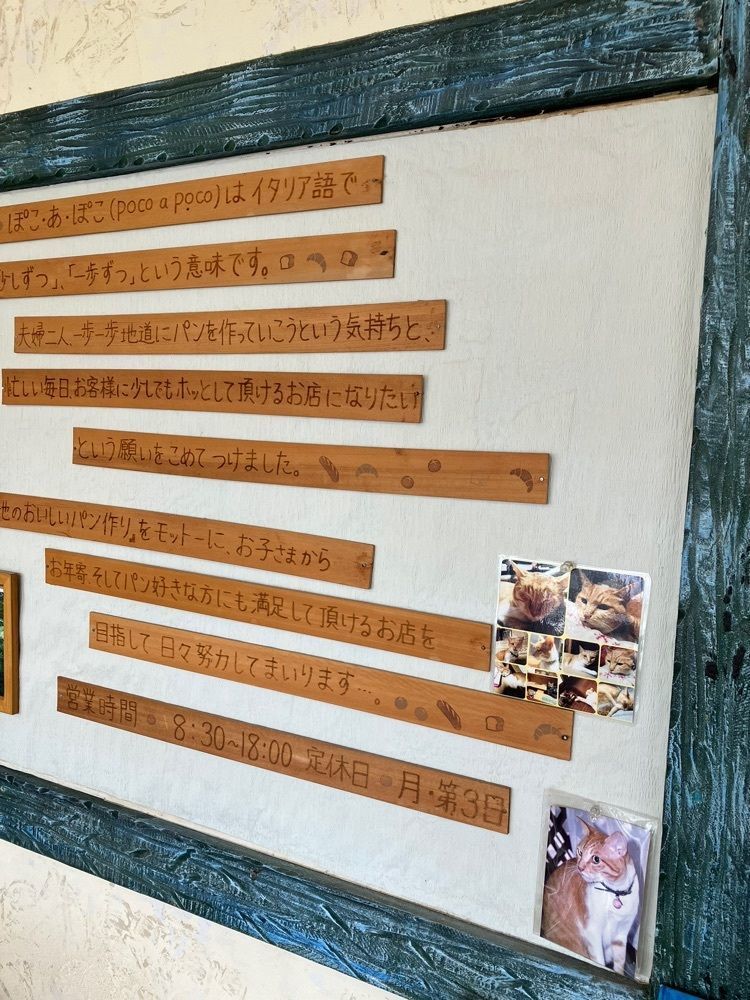 ぽこ・あ・ぽこ(poco a poco)は イタリア語で
少しずつ」、「一歩ずつ」という意味です。
夫婦二人、一歩一歩地道にパンを作っていこうという気持ちと、
忙しい毎日、お客様に少しでもホッとして頂けるお店になりたい
という願いをこめてつけました。
のおいしいパン作り』をモットーに、お子さまから
お年寄、そしてパン好きな方にも満足して頂けるお店を
目指して 日々努力してまいります…。
営業時間 8:30~18:00 定休日 月・第3日